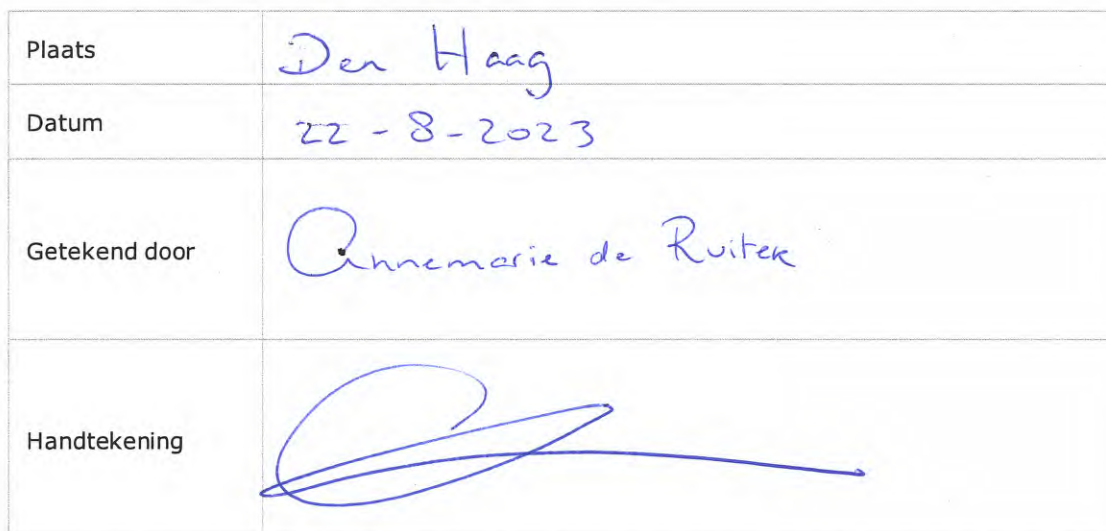 Plaats Den Haag
Datum 22-8-2023
Getekend door Annemarie de Ruiter
Handtekening